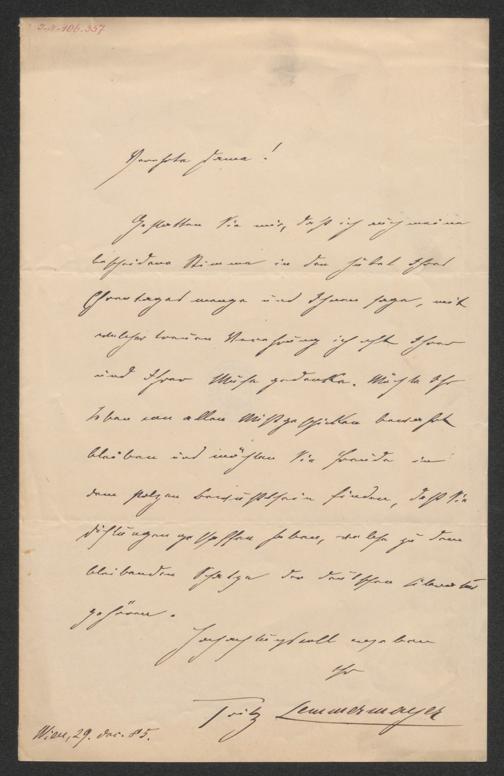 I.N. 106.357
Verehrte Dame!
Gestatten Sie mir, daß ich auch meine
bescheidene Stimme in den Jubel Ihres
Ehrentages menge und Ihnen sage, mit
welcher treuen Verehrung ich oft Ihrer
und Ihrer Muse gedenke. Möchte Ihr
Leben von allen Mißgeschicken bewahrt
bleiben und möchten Sie Freude in
dem stolzen Bewußtsein finden, daß Sie
Dichtungen geschaffen haben, welche zu dem
bleibenden Schatze der deutschen Literatur
gehören.
Hochachtungsvoll ergeben
Ihr
Fritz Lemmermayer
Wien, 29. Dec. 85.